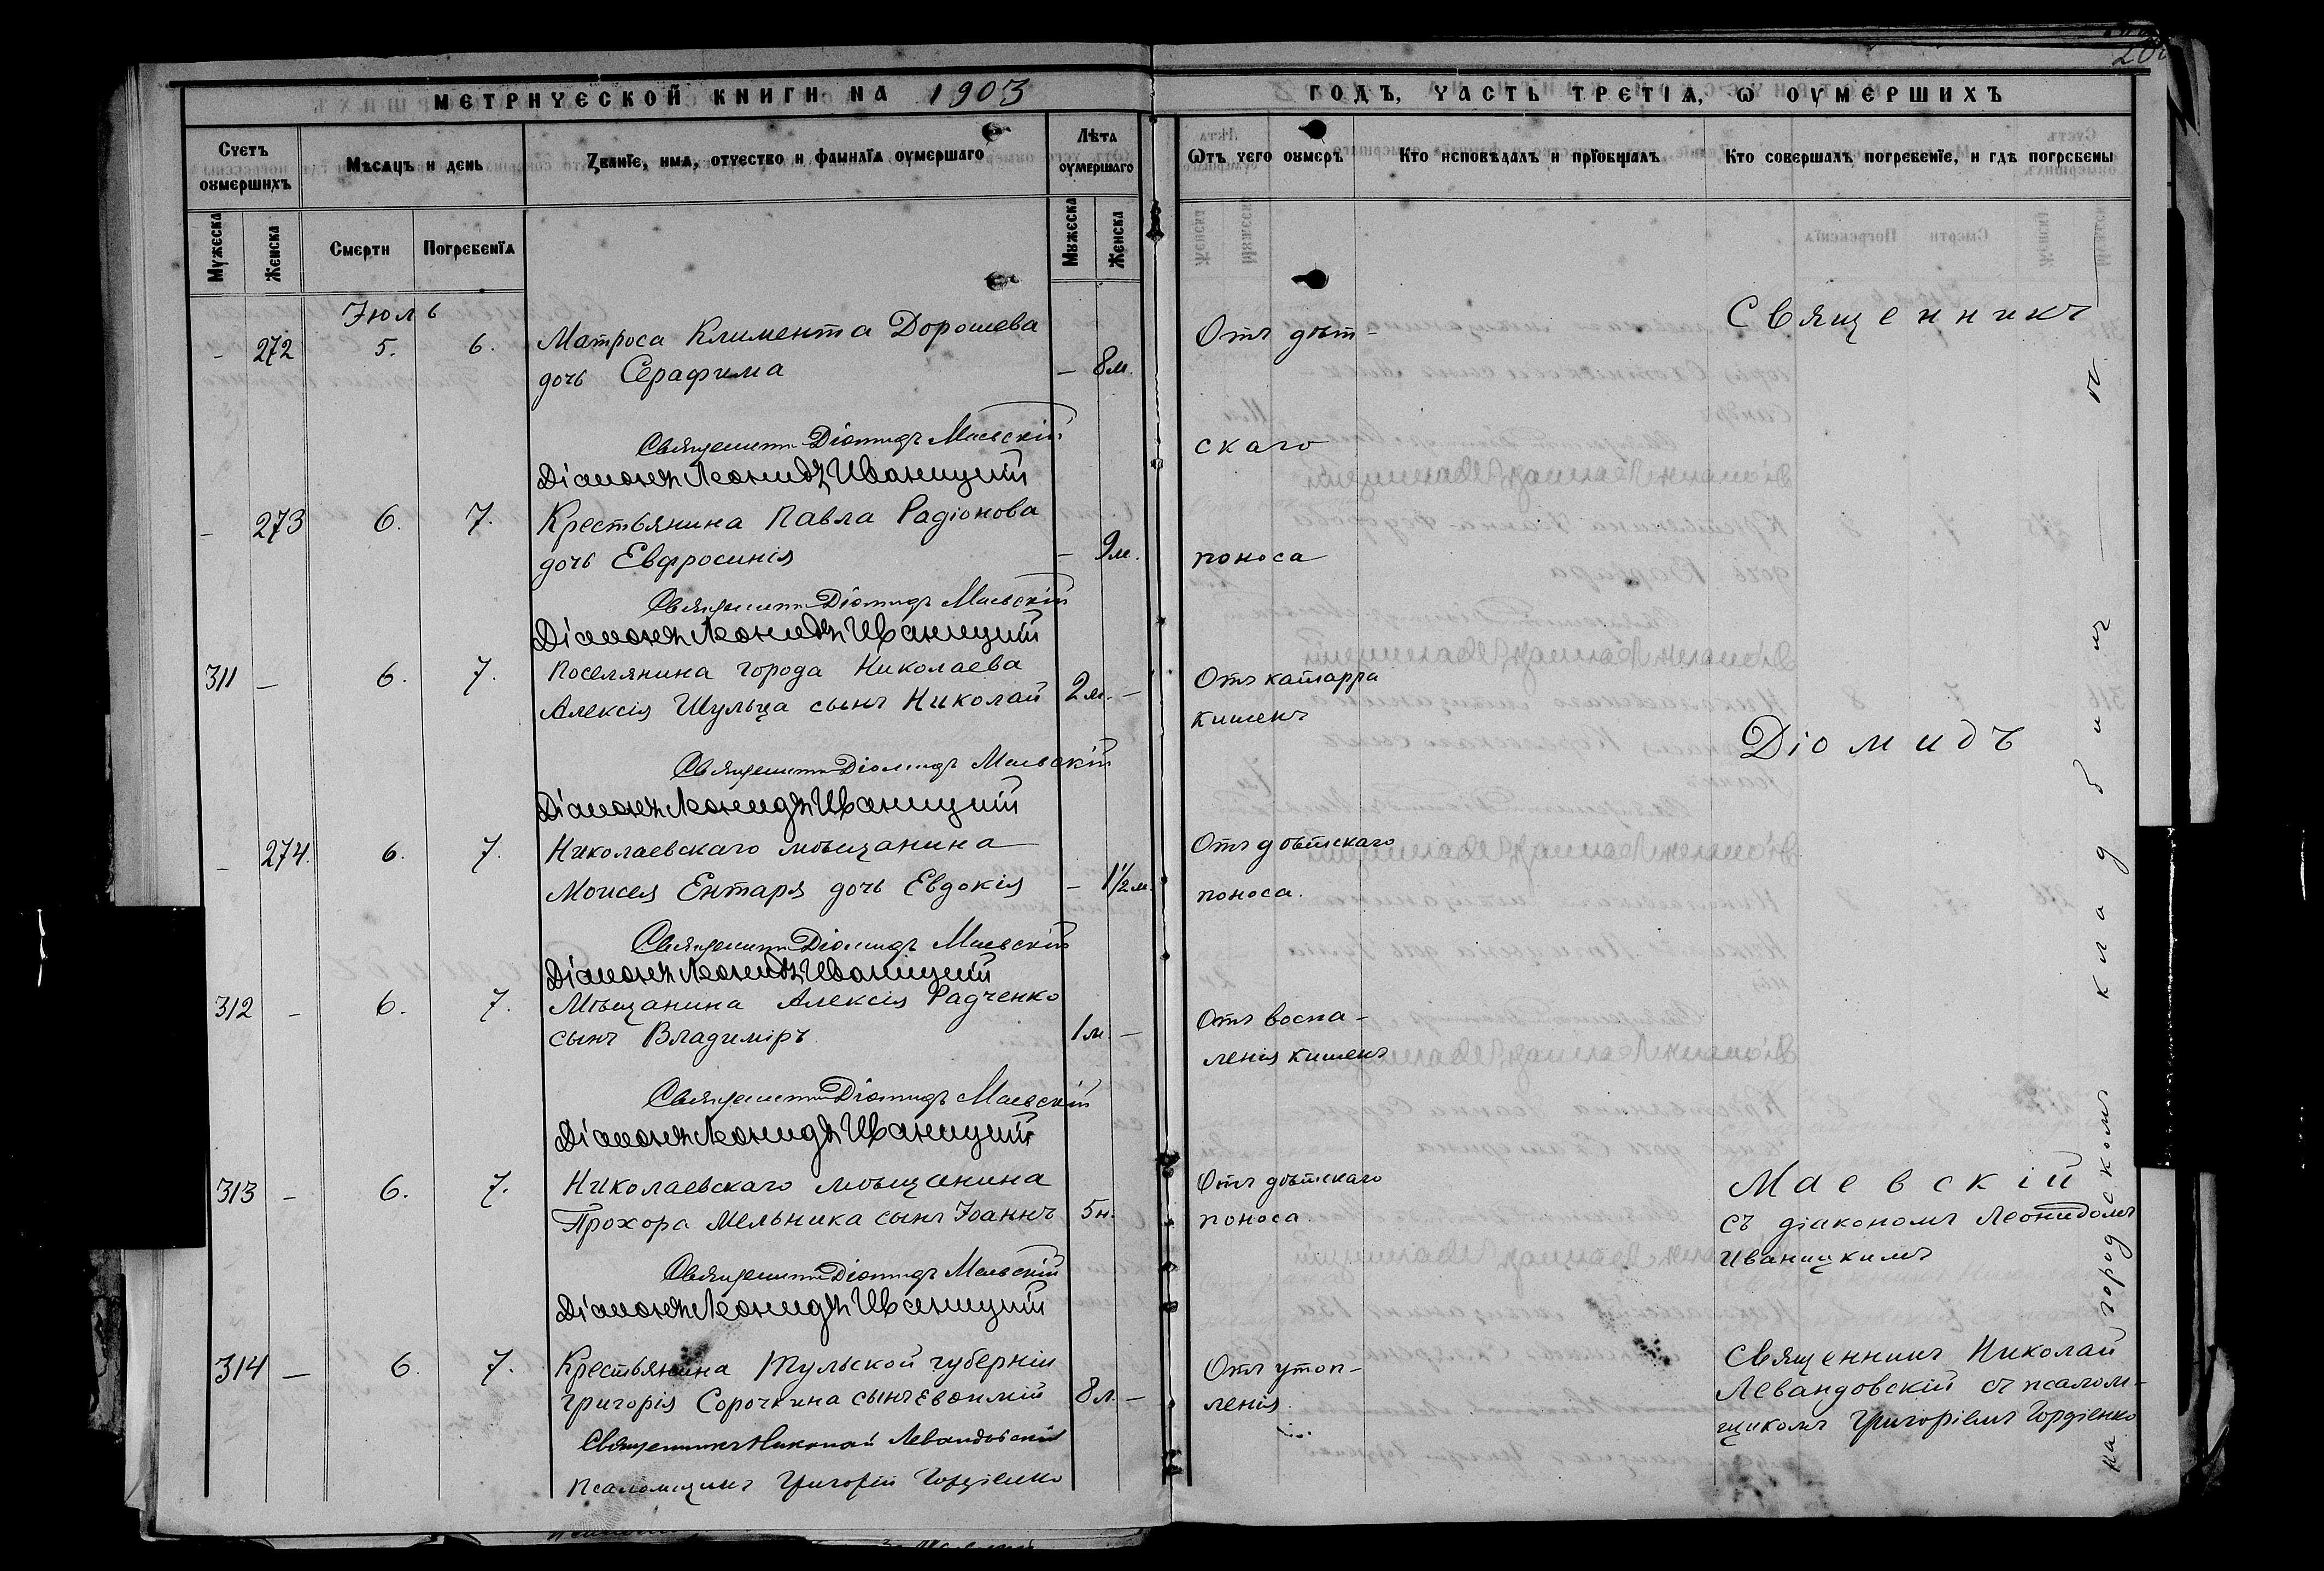 МЕТРИЧЕСКОЙ КНИГИ НА 1903
Счетъ оумершихъ
Мѣсяцъ и день
Званїе, имя, отчество и фамилїя оумершаго
Лѣта оумершаго
Мужеска
Женска
Смерти
Погребенїя
Мужеска
Женска
Іюль
- 272 5. 6. Матроса Климента Дорошева
дочь Серафима - 8м.
Священникъ Діомидъ Маевскій
Діаконъ Леонидъ Иваницкій
- 273 6. 7. Крестьянина Павла Радіонова
дочь Евфросинія - 9м.
Священникъ Діомидъ Маевскій
Діаконъ Леонидъ Иваницкій
311 - 6. 7. Поселянина города Николаева
Алексія Шульца сынъ Николай 2м. -
Священникъ Діомидъ Маевскій
Діаконъ Леонидъ Иваницкій
- 274. 6. 7. Николаевскаго мѣщанина
Моисея Ентаря дочь Евдокія - 1½м.
Священникъ Діомидъ Маевскій
Діаконъ Леонидъ Иваницкій
312 - 6. 7. Мѣщанина Алексія Радченко
сынъ Владиміръ 1м. -
Священникъ Діомидъ Маевскій
Діаконъ Леонидъ Иваницкій
313 - 6. 7. Николаевскаго мѣщанина
Прохора Мельника сынъ Іоаннъ 5н.
Священникъ Діомидъ Маевскій
Діаконъ Леонидъ Иваницкій
314 - 6. 7. Крестьянина Тульской губерніи
Григорія Сорочкина сынъ Евѳимій 8л. -
Священникъ Николай Левандовскій
Псаломщикъ Григорій Гордіенко
ГОДЪ, ЧАСТЬ ТРЕТІЯ, Ѡ ОУМЕРШИХЪ
Ѿтъ чего оумеръ
Кто исповѣдалъ и прїобщалъ
Кто совершалъ погребенїе, и гдѣ погребены
Отъ дѣт-
скаго
поноса
Отъ катарра
кишекъ
Отъ дѣтскаго
поноса.
Отъ воспа-
ленія кишекъ
Отъ дѣтскаго
поноса.
Отъ утоп-
ленія.
Священникъ
Діомидъ
Маевскій
съ діакономъ Леонидомъ
Иваницкимъ
Священникъ Николай
Левандовскій съ псалом-
щикомъ Григоріемъ Гордіенко
на городскомъ кладбищѣ